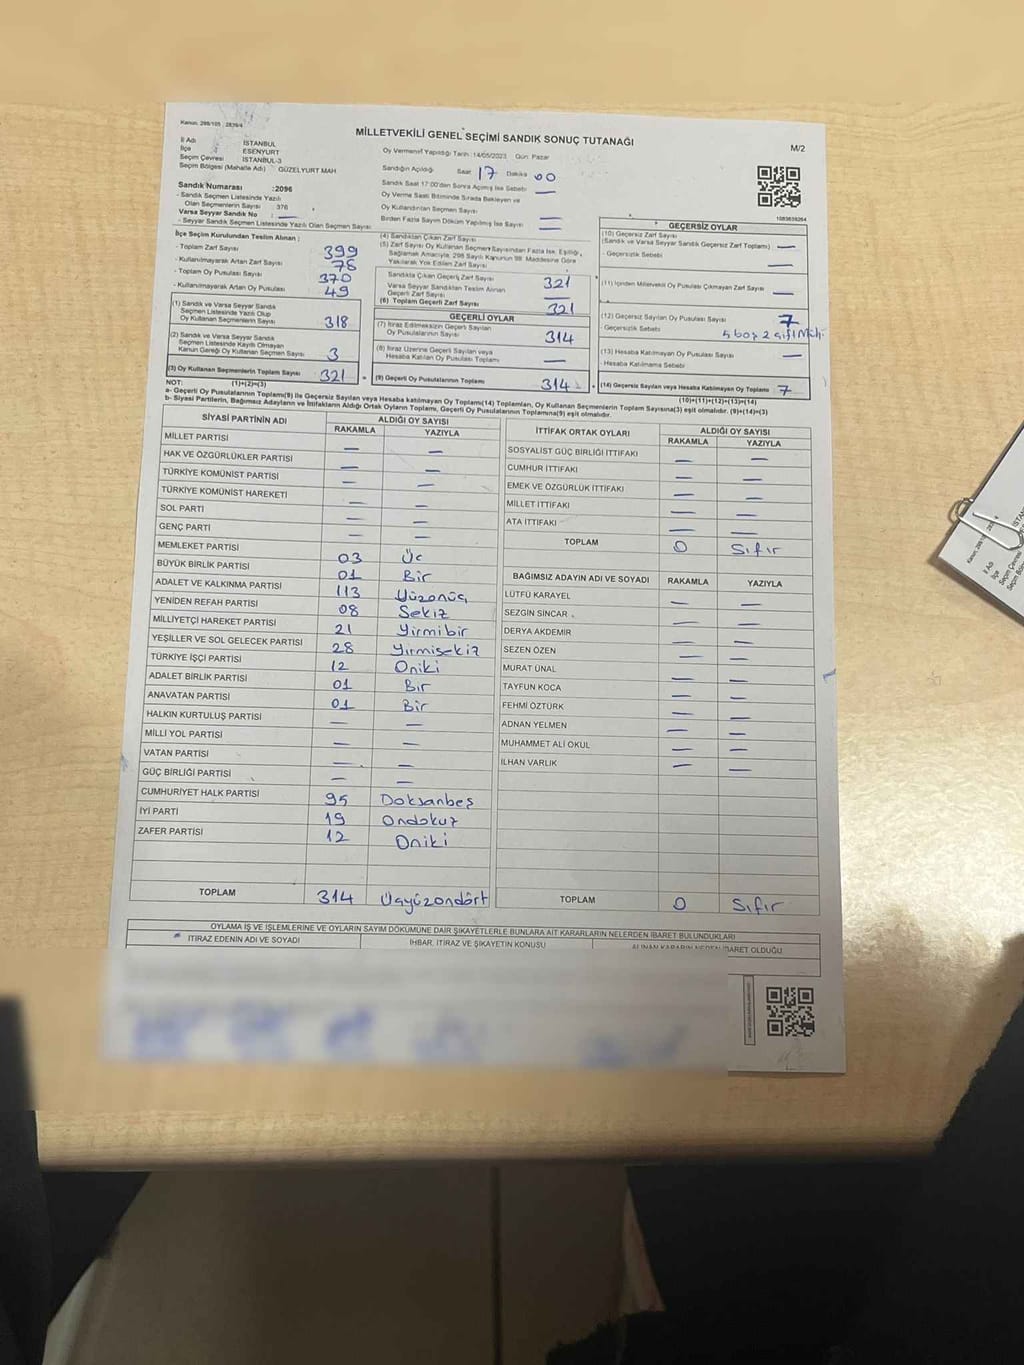 Kanun: 298/105 : 2839/4
MİLLETVEKİLİ GENEL SEÇİMİ SANDIK SONUÇ TUTANAĞI
M/2
İl Adı : İSTANBUL
İlçe : ESENYURT
Seçim Çevresi : İSTANBUL-3
Seçim Bölgesi (Mahalle Adı) : GÜZELYURT MAH
Sandık Numarası :2096
- Sandık Seçmen Listesinde Yazılı
Olan Seçmenlerin Sayısı : 376
Varsa Seyyar Sandık No : —
- Seyyar Sandık Seçmen Listesinde Yazılı Olan Seçmen Sayısı:
Oy Vermenin Yapıldığı Tarih :14/05/2023 Gün: Pazar
Sandığın Açıldığı Saat 17 Dakika 00
Sandık Saat 17:00'dan Sonra Açılmış İse Sebebi —
Oy Verme Saati Bitiminde Sırada Bekleyen ve
Oy Kullandırılan Seçmen Sayısı —
Birden Fazla Sayım Döküm Yapılmış İse Sayısı —
1083639264
İlçe Seçim Kurulundan Teslim Alınan :
- Toplam Zarf Sayısı 399
- Kullanılmayarak Artan Zarf Sayısı 78
- Toplam Oy Pusulası Sayısı 370
- Kullanılmayarak Artan Oy Pusulası 49
(1) Sandık ve Varsa Seyyar Sandık
Seçmen Listesinde Yazılı Olup
Oy Kullanan Seçmenlerin Sayısı 318
(2) Sandık ve Varsa Seyyar Sandık
Seçmen Listesinde Kayıtlı Olmayan
Kanun Gereği Oy Kullanan Seçmen Sayısı 3
(3) Oy Kullanan Seçmenlerin Toplam Sayısı 321
(1)+(2)=(3)
(4) Sandıktan Çıkan Zarf Sayısı
(5) Zarf Sayısı Oy Kullanan Seçmen Sayısından Fazla İse, Eşitliği
Sağlamak Amacıyla, 298 Sayılı Kanunun 98. Maddesine Göre
Yakılarak Yok Edilen Zarf Sayısı
Sandıkta Çıkan Geçerli Zarf Sayısı 321
Varsa Seyyar Sandıktan Teslim Alınan
Geçerli Zarf Sayısı —
(6) Toplam Geçerli Zarf Sayısı 321
GEÇERLİ OYLAR
(7) İtiraz Edilmeksizin Geçerli Sayılan
Oy Pusulalarının Sayısı 314
(8) İtiraz Üzerine Geçerli Sayılan veya
Hesaba Katılan Oy Pusulası Toplamı —
(9) Geçerli Oy Pusulalarının Toplamı 314
GEÇERSİZ OYLAR
(10) Geçersiz Zarf Sayısı
(Sandık ve Varsa Seyyar Sandık Geçersiz Zarf Toplamı) —
- Geçersizlik Sebebi —
(11) İçinden Milletvekili Oy Pusulası Çıkmayan Zarf Sayısı —
(12) Geçersiz Sayılan Oy Pusulası Sayısı 7
- Geçersizlik Sebebi 5 boş 2 çift
(13) Hesaba Katılmayan Oy Pusulası Sayısı —
- Hesaba Katılmama Sebebi
(14) Geçersiz Sayılan veya Hesaba Katılmayan Oy Toplamı 7
(10)+(11)+(12)+(13)=(14)
NOT:
a- Geçerli Oy Pusulalarının Toplamı(9) ile Geçersiz Sayılan veya Hesaba Katılmayan Oy Toplamı(14) Toplamları, Oy Kullanan Seçmenlerin Toplam Sayısına(3) eşit olmalıdır. (9)+(14)=(3)
b- Siyasi Partilerin, Bağımsız Adayların ve İttifakların Aldığı Ortak Oyların Toplamı, Geçerli Oy Pusulalarının Toplamına(9) eşit olmalıdır.
SİYASİ PARTİNİN ADI ALDIĞI OY SAYISI
RAKAMLA YAZIYLA
MİLLET PARTİSİ — —
HAK VE ÖZGÜRLÜKLER PARTİSİ — —
TÜRKİYE KOMÜNİST PARTİSİ — —
TÜRKİYE KOMÜNİST HAREKETİ — —
SOL PARTİ — —
GENÇ PARTİ — —
MEMLEKET PARTİSİ 03 Üç
BÜYÜK BİRLİK PARTİSİ 01 Bir
ADALET VE KALKINMA PARTİSİ 113 Yüzonüç
YENİDEN REFAH PARTİSİ 08 Sekiz
MİLLİYETÇİ HAREKET PARTİSİ 21 Yirmibir
YEŞİLLER VE SOL GELECEK PARTİSİ 28 Yirmisekiz
TÜRKİYE İŞÇİ PARTİSİ 12 Oniki
ADALET BİRLİK PARTİSİ 01 Bir
ANAVATAN PARTİSİ 01 Bir
HALKIN KURTULUŞ PARTİSİ — —
MİLLİ YOL PARTİSİ — —
VATAN PARTİSİ — —
GÜÇ BİRLİĞİ PARTİSİ — —
CUMHURİYET HALK PARTİSİ 95 Doksanbeş
İYİ PARTİ 19 Ondokuz
ZAFER PARTİSİ 12 Oniki
TOPLAM 314 Üçyüzondört
İTTİFAK ORTAK OYLARI ALDIĞI OY SAYISI
RAKAMLA YAZIYLA
SOSYALİST GÜÇ BİRLİĞİ İTTİFAKI — —
CUMHUR İTTİFAKI — —
EMEK VE ÖZGÜRLÜK İTTİFAKI — —
MİLLET İTTİFAKI — —
ATA İTTİFAKI — —
TOPLAM 0 Sıfır
BAĞIMSIZ ADAYIN ADI VE SOYADI RAKAMLA YAZIYLA
LÜTFÜ KARAYEL — —
SEZGİN SİNCAR — —
DERYA AKDEMİR — —
SEZEN ÖZEN — —
MURAT ÜNAL — —
TAYFUN KOCA — —
FEHMİ ÖZTÜRK — —
ADNAN YELMEN — —
MUHAMMET ALİ OKUL — —
İLHAN VARLIK — —
TOPLAM 0 Sıfır
OYLAMA İŞ VE İŞLEMLERİNE VE OYLARIN SAYIM DÖKÜMÜNE DAİR ŞİKAYETLERLE BUNLARA AİT KARARLARIN NELERDEN İBARET BULUNDUKLARI
İTİRAZ EDENİN ADI VE SOYADI İHBAR, İTİRAZ VE ŞİKAYETİN KONUSU ALINAN KARARIN NEDEN İBARET OLDUĞU